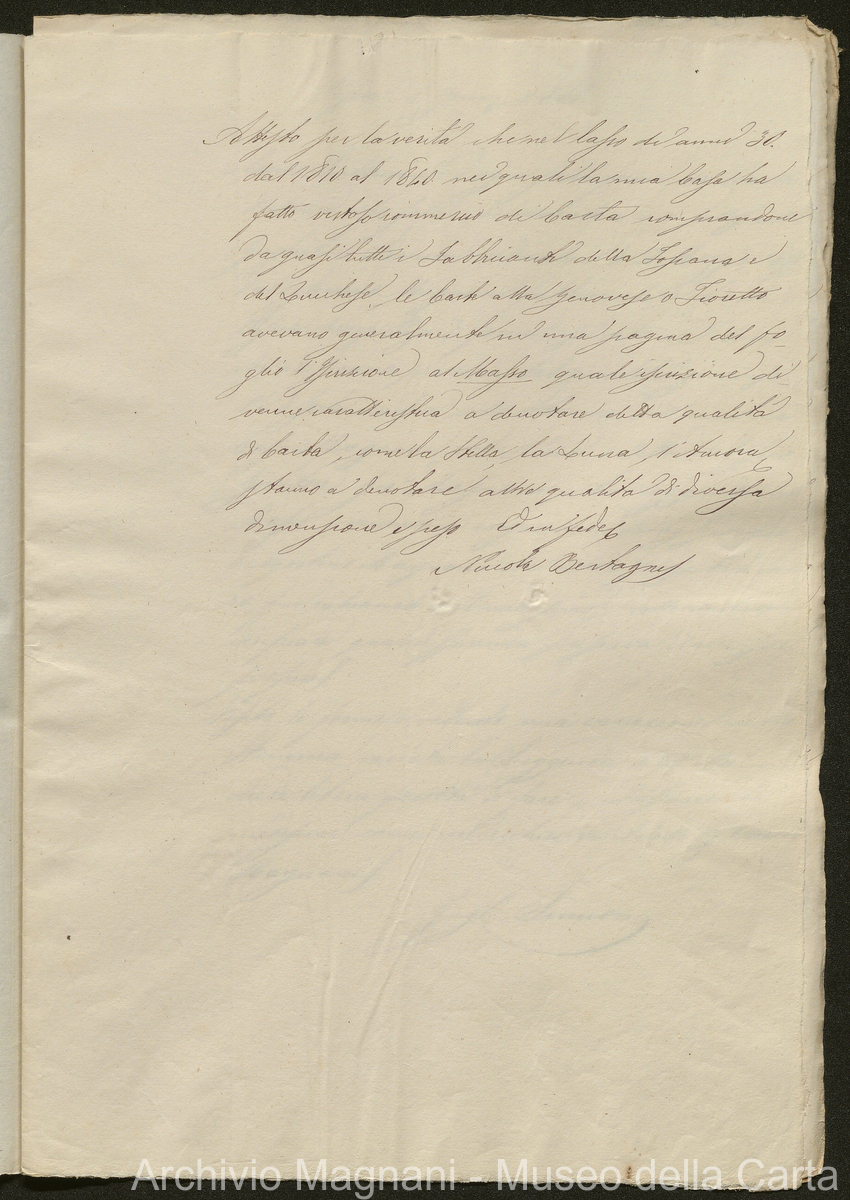 Attesto per la verità che nel lasso di anni 30.
dal 1810 al 1840 nei quali la mia Casa ha
fatto vistoso commercio di Carta comprandone
da quasi tutti i Fabbricanti della Toscana e
del Lucchese, le Carte alla Genovese o Fioretto
avevano generalmente in una pagina del fo-
glio l'Iscrizione al Masso quale iscrizione di
venne caratteristica a denotare detta qualità
di Carta, come la Stella, la Luna, l'Ancora,
stanno a denotare altre qualità di diversa
dimensione e peso Ed in fede
Bertagni
Archivio Magnani - Museo della Carta